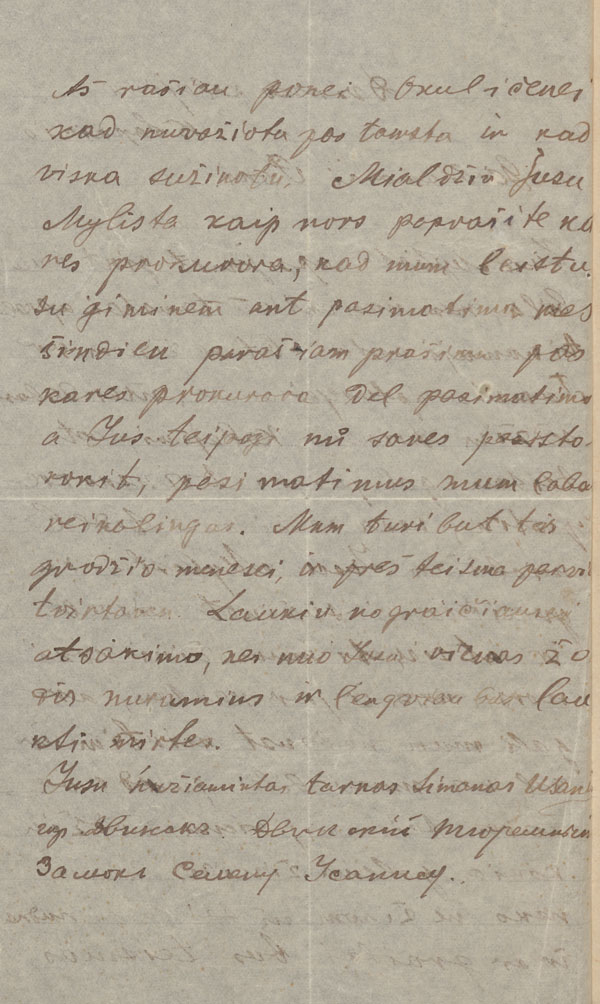 Aš rašiau ponei Okuličenei
kad nuvažiotu pas tamsta ir kad
viska sužinotu. Mialdžiu Jusu
Mylista kaip nors poprašite ka
res prokurora, kad mum leistu
su giminem ant pasimatimo mes
šindien parašiam prašimu pas
kares prokurora del pasimatimo
a Jus teipogi nů saves pasisto
rokit, pasimatimus mum laba
reikalingas. Mum turi but teis
grodžio menesei, ir preš teisma
Laukiu nograičiausei
atsakimo, nes nuo Jusu vienas žo
dis nuramins ir lengviau bus lau
kti mirtes.
Jusu tarnas Simanas
гор Двинскъ Двинский Тюремный
Замокъ Семену